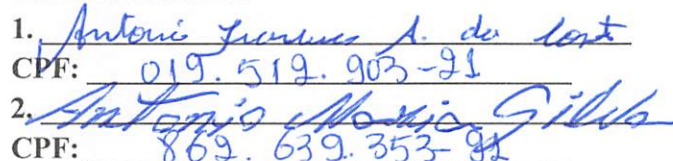 1. Antonio A. da Costa
CPF: 019.519.903-21
2. Antonio Maria Silva
CPF: 869.639.353-91